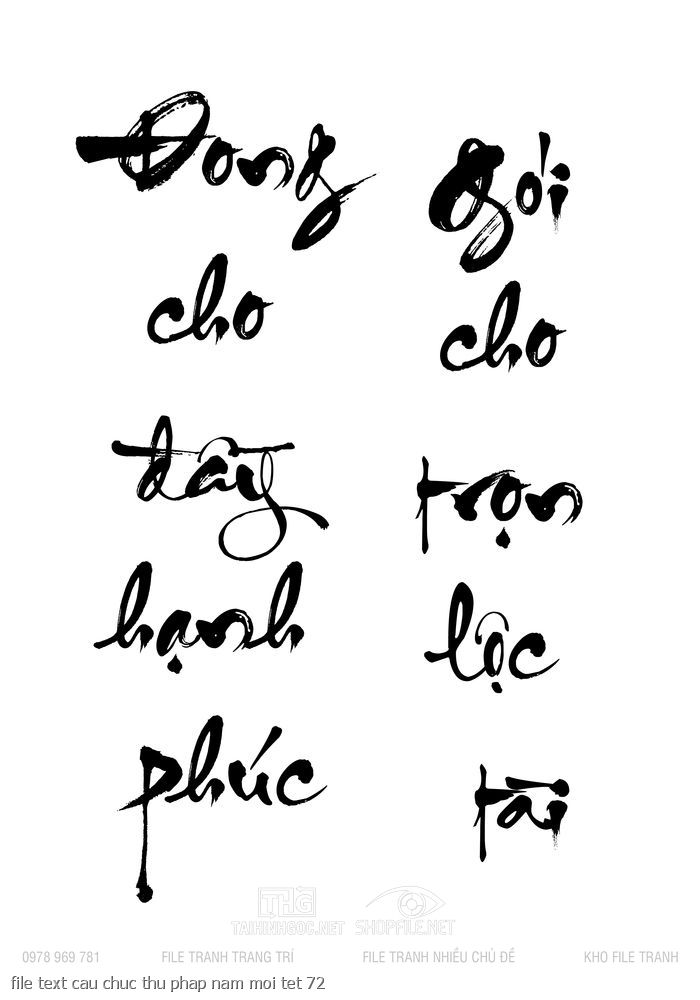 Đong
cho
đầy
hạnh
phúc
gói
cho
trọn
lộc
tài
THG
TAIHINHGOC.NET
SHOPFILE.NET
0978 969 781
FILE TRANH TRANG TRÍ
FILE TRANH NHIỀU CHỦ ĐỀ
KHO FILE TRANH
file text cau chuc thu phap nam moi tet 72